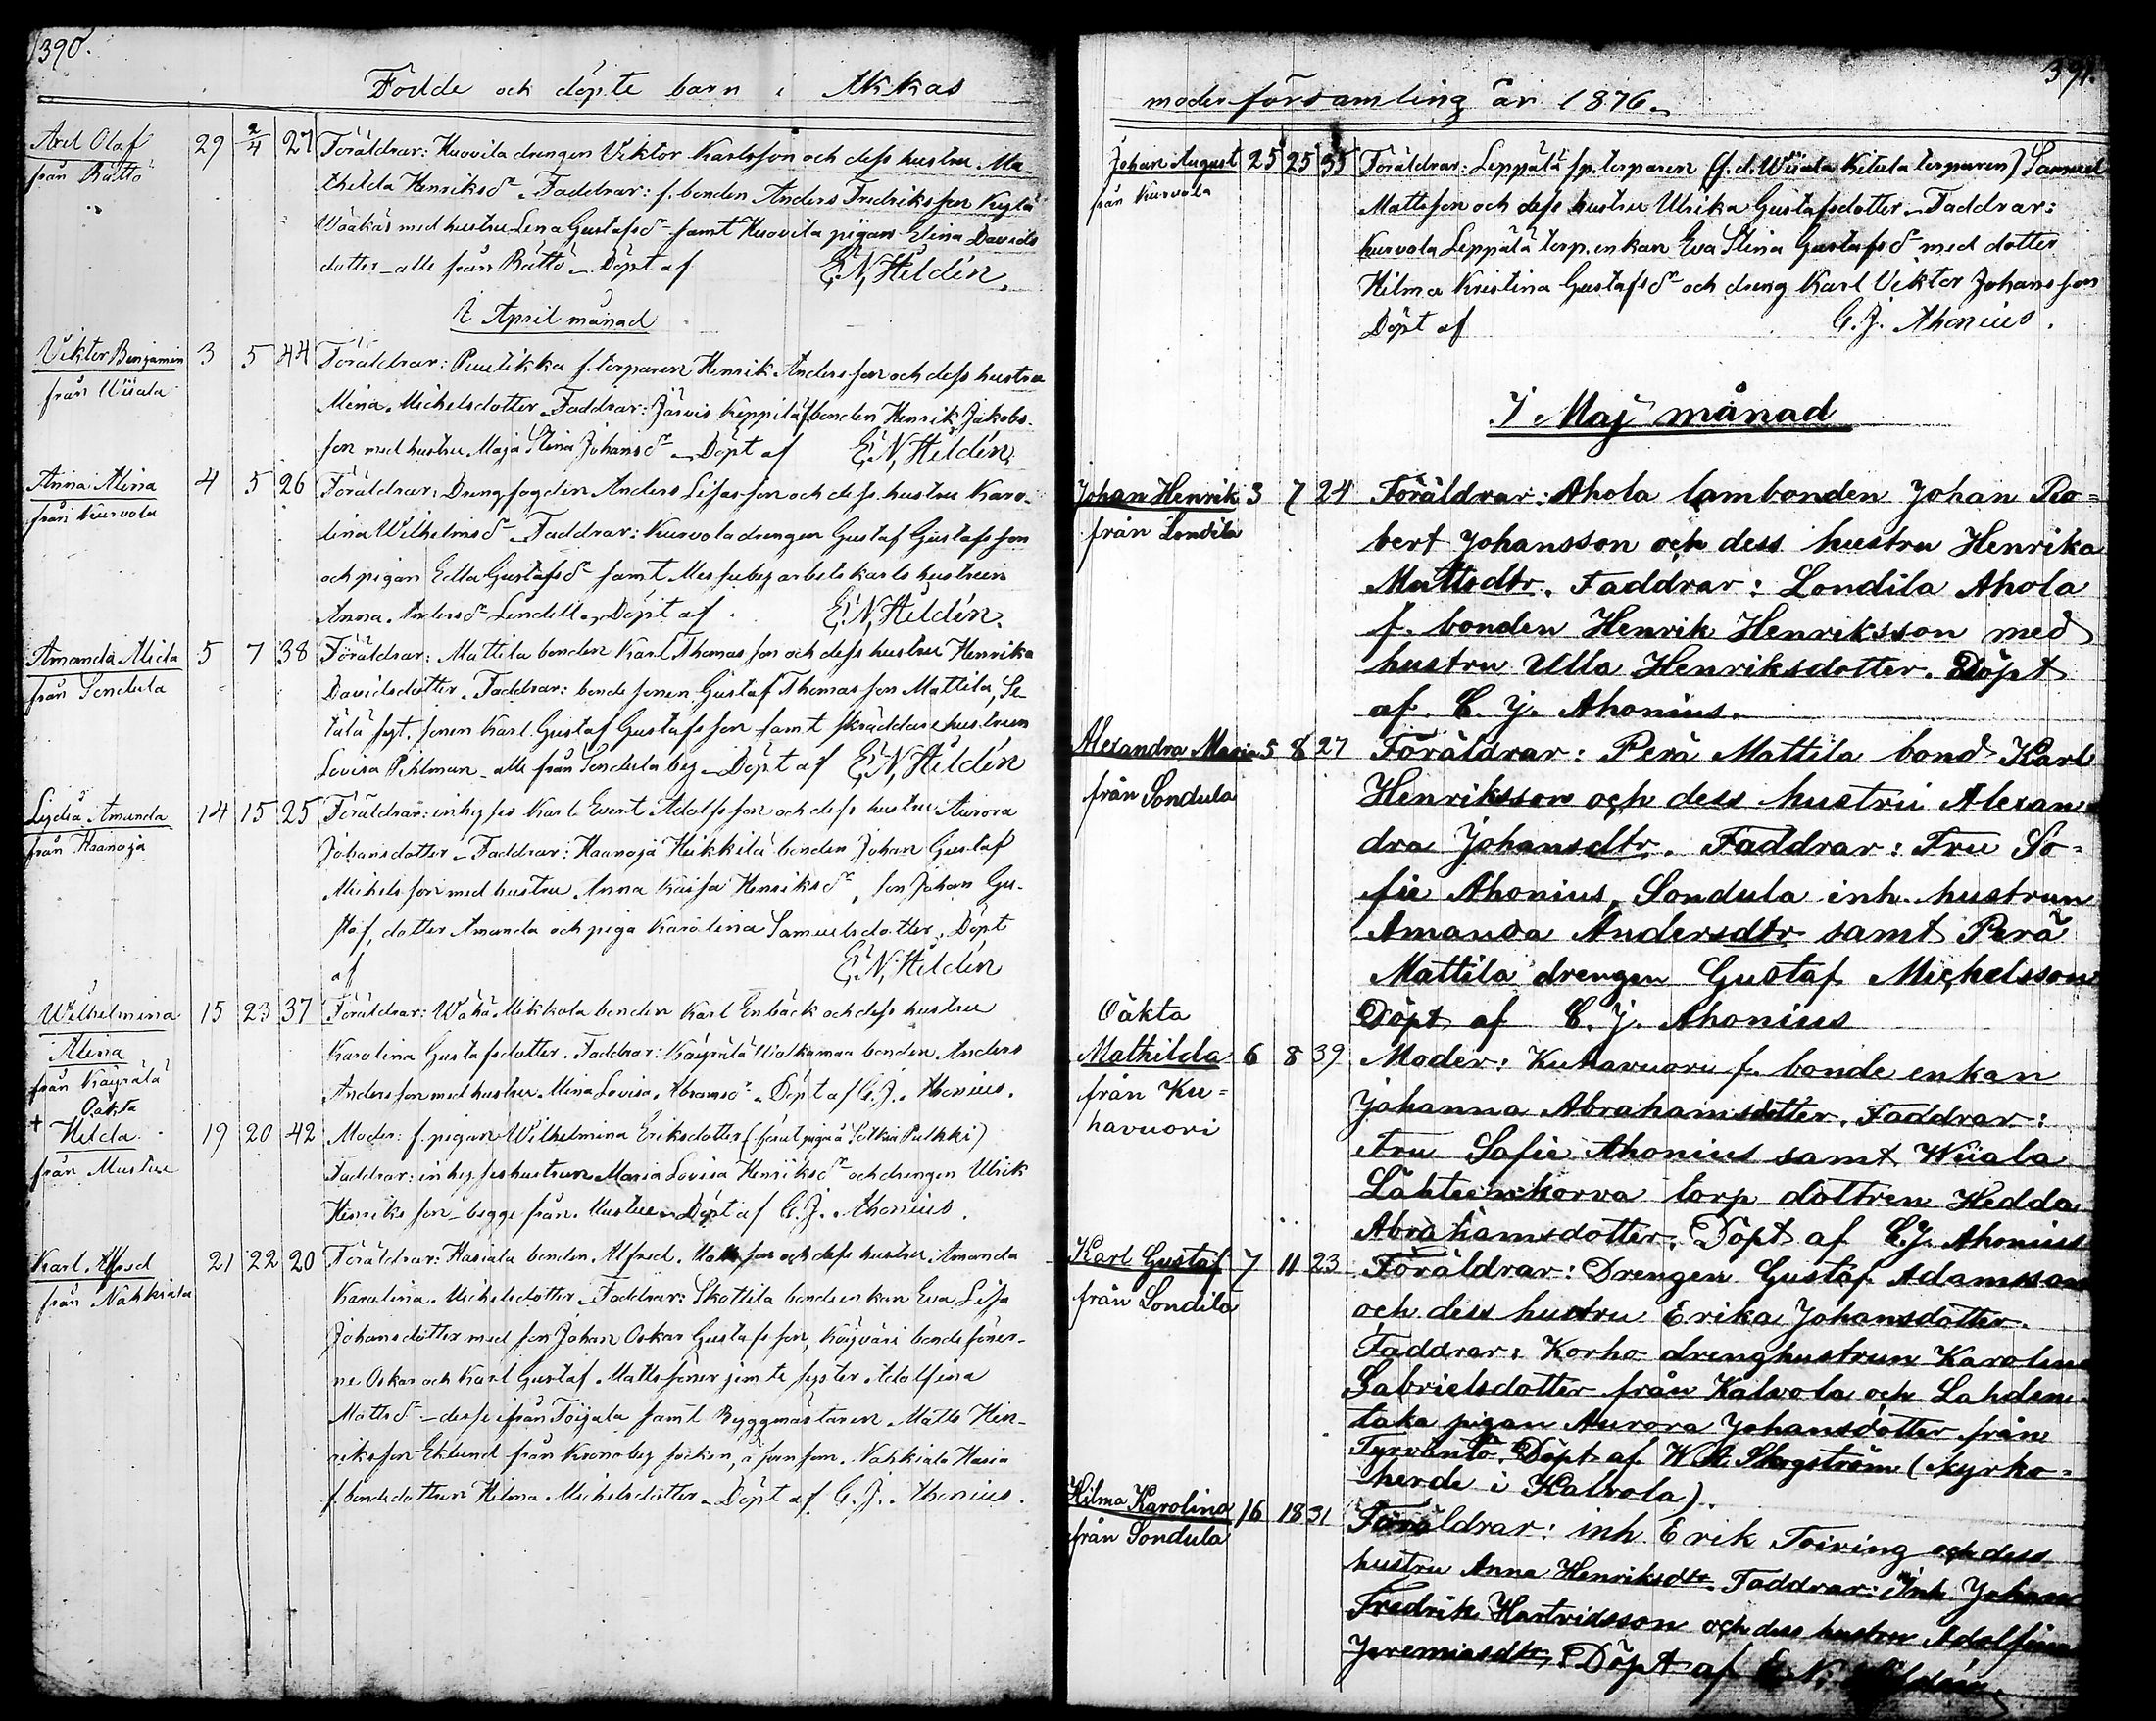 390.
Födde och döpte barn i Akkas
Axel Olaf 29 2/4 27 Föräldrar: Huovila drengen Viktor Karlsson och dess hustru Ma-
från Rättö thilda Henriksdr. Faddrar: f. bonden Anders Fredriksson
med hustru Lena Gustafsdr samt Huovila pigan Elina Davids
dotter – alle från Rättö – Döpt af E. N. Heldén.
I April månad
Viktor Benjamin 3 5 44 Föräldrar: Puutikka f. torparen Henrik Andersson och dess hustru
från Wiiala Mina Michelsdotter. Faddrar: Järvis Keppilä f. bonden Henrik Jakobs-
son med hustru Maja Stina Johansdr – Döpt af E. N. Heldén.
Anna Alina 4 5 26 Föräldrar: Drengfogden Anders Lisasson och dess hustru Karo-
från Kurvola lina Wilhelmsdr – Faddrar: Kurvola drengen Gustaf Gustafsson
och pigan Edla Gustafsdr samt arbetskarls hustrun
Anna Andersdr Lindell – Döpt af E. N. Heldén.
Amanda Alida 5 7 38 Föräldrar: Mattila bonden Karl Thomasson och dess hustru Henrika
från Sondula Davidsdotter. Faddrar: bondesonen Gustaf Thomasson Mattila, Se-
tälä syt. sonen Karl Gustaf Gustafsson samt skräddarehustrun
Lovisa Pihlman – alle från Sondula by – Döpt af E. N. Heldén
Lydia Amanda 14 15 25 Föräldrar: inhyses Karl Evert Adolfsson och dess hustru Aurora
från Haanoja Johansdotter – Faddrar: Haanoja Heikkilä bonden Johan Gustaf
Michelsson med hustru Anna Kaisa Henriksdr, son Johan Gu-
staf, dotter Amanda och piga Karolina Samuelsdotter, Döpt
af E. N. Heldén
Wilhelmina 15 23 37 Föräldrar: Wähä Mikkola bonden Karl Enbäck och dess hustru
Alina Karolina Gustafsdotter. Faddrar: Käyrälä Walkamaa bonden Anders
från Käyrälä Andersson med hustru Mina Lovisa Abramsdr – Döpt af C. J. Ahonius.
Oäkta
+ Hilda 19 20 42 Moder: f. pigan Wilhelmina Eriksdotter (förut piga å Sotkia Pulkki)
från Mustue Faddrar: inhyseshustrun Maria Lovisa Henriksdr och drengen Ulrik
Henriksson – begge från Mustue – Döpt af C. J. Ahonius.
Karl Alfred 21 22 20 Föräldrar: Hasiala bonden Alfred Mattsson och dess hustru Amanda
från Nahkiala Karolina Michelsdotter – Faddrar: Skottila bondenkan Eva Lisa
Johansdotter med son Johan Oskar Gustafsson, bondesöner-
ne Oskar och Karl Gustaf Mattssöner jemte syster Adolfina
Mattsdr – desse ifrån Toijala samt Byggmästaren Matts Hen-
riksson Eklund från Kronoby socken, äfvensom Nahkiala Hasia
f. bondedottren Hilma Michelsdotter – Döpt af C. J. Ahonius.
391.
moderförsamling år 1876.
Johan August 25 25 35 Föräldrar: Leppälä sp. torparen (f. d. Wiiala Kitula torparen) Samuel
från Kurvola Mattsson och dess hustru Ulrika Gustafsdotter – Faddrar:
Kurvola Leppälä torp. enkan Eva Stina Gustafsdr med dotter
Hilma Kristina Gustafsdr och dreng Karl Viktor Johansson
Döpt af C. J. Ahonius.
I Maj månad
Johan Henrik 3 7 24 Föräldrar: Ahola lambonden Johan Ro=
från Londila bert Johansson och dess hustru Henrika
Mattsdtr. Faddrar: Londila Ahola
f. bonden Henrik Henriksson med
hustru Ulla Henriksdotter. Döpt
af C. J. Ahonius.
Alexandra Maria 5 8 27 Föräldrar: Perä Mattila bond Karl
från Sondula Henriksson och dess hustru Alexan=
dra Johansdtr. Faddrar: Fru So=
fie Ahonius, Sondula inh. hustrun
Amanda Andersdtr samt Perä
Mattila drengen Gustaf Michelsson
Oäkta Döpt af C. J. Ahonius
Mathilda 6 8 39 Moder: Kuhavuori f. bonde enkan
från Ku= Johanna Abrahamsdotter. Faddrar:
havuori Fru Sofie Ahonius samt Wiiala
Lähteenkorva torp dottren Hedda
Abrahamsdotter. Döpt af C. J. Ahonius
Karl Gustaf 7 11 23 Föräldrar: Drengen Gustaf Adamsson
från Londila och dess hustru Erika Johansdotter.
Faddrar: Korho drenghustrun Karolina
Gabrielsdotter från Kalvola och Lahden=
taka pigan Aurora Johansdotter från
Tyrväntö. Döpt af W. A. Skogström (kyrko=
herde i Kalvola).
Hilma Karolina 16 18 31 Föräldrar: inh. Erik Toiving och dess
från Sondula hustru Anna Henriksdtr. Faddrar: Inh. Johan
Fredrik Hartvidsson och dess hustru Adolfina
Jeremiasdtr, Döpt af E. N. Heldén.